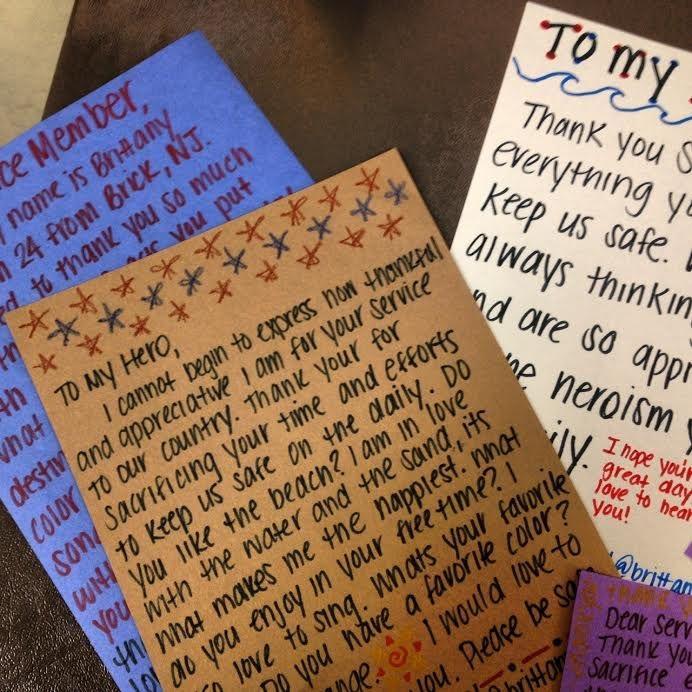 ce Member,
name is Brittany
24 from Brick, NJ.
to thank you so much
you put
what
color
you
To My Hero,
I cannot begin to express how thankful
and appreciative I am for your service
to our country. Thank your for
sacrificing your time and efforts
to keep us safe on the daily. Do
you like the beach? I am in love
with the water and the sand, its
what makes me the happiest. What
do you enjoy in your free time? I
love to sing. Whats your favorite
Do you have a favorite color?
I would love to
you. Please be sa
To my
Thank you s
everything y
Keep us safe.
always thinkin
nd are so appr
heroism
ily.
I hope your
great day
love to hear
you!
@brittan
Dear serv
Thank you
sacrifice